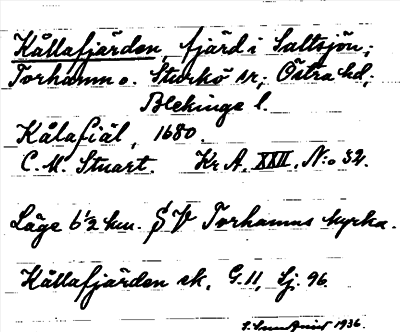 Kållafjärden, fjärd i Saltsjön;
Torhamn o. Sturkö sr; Östra hd;
Blekinge l.
Kålafiäl, 1680.
C. M. Stuart. Kr A. XXII, N:o 32.
Läge 6½ km. SV Torhamns kyrka.
Kållafjärden sk. G. 11, Sj. 96.
1936.